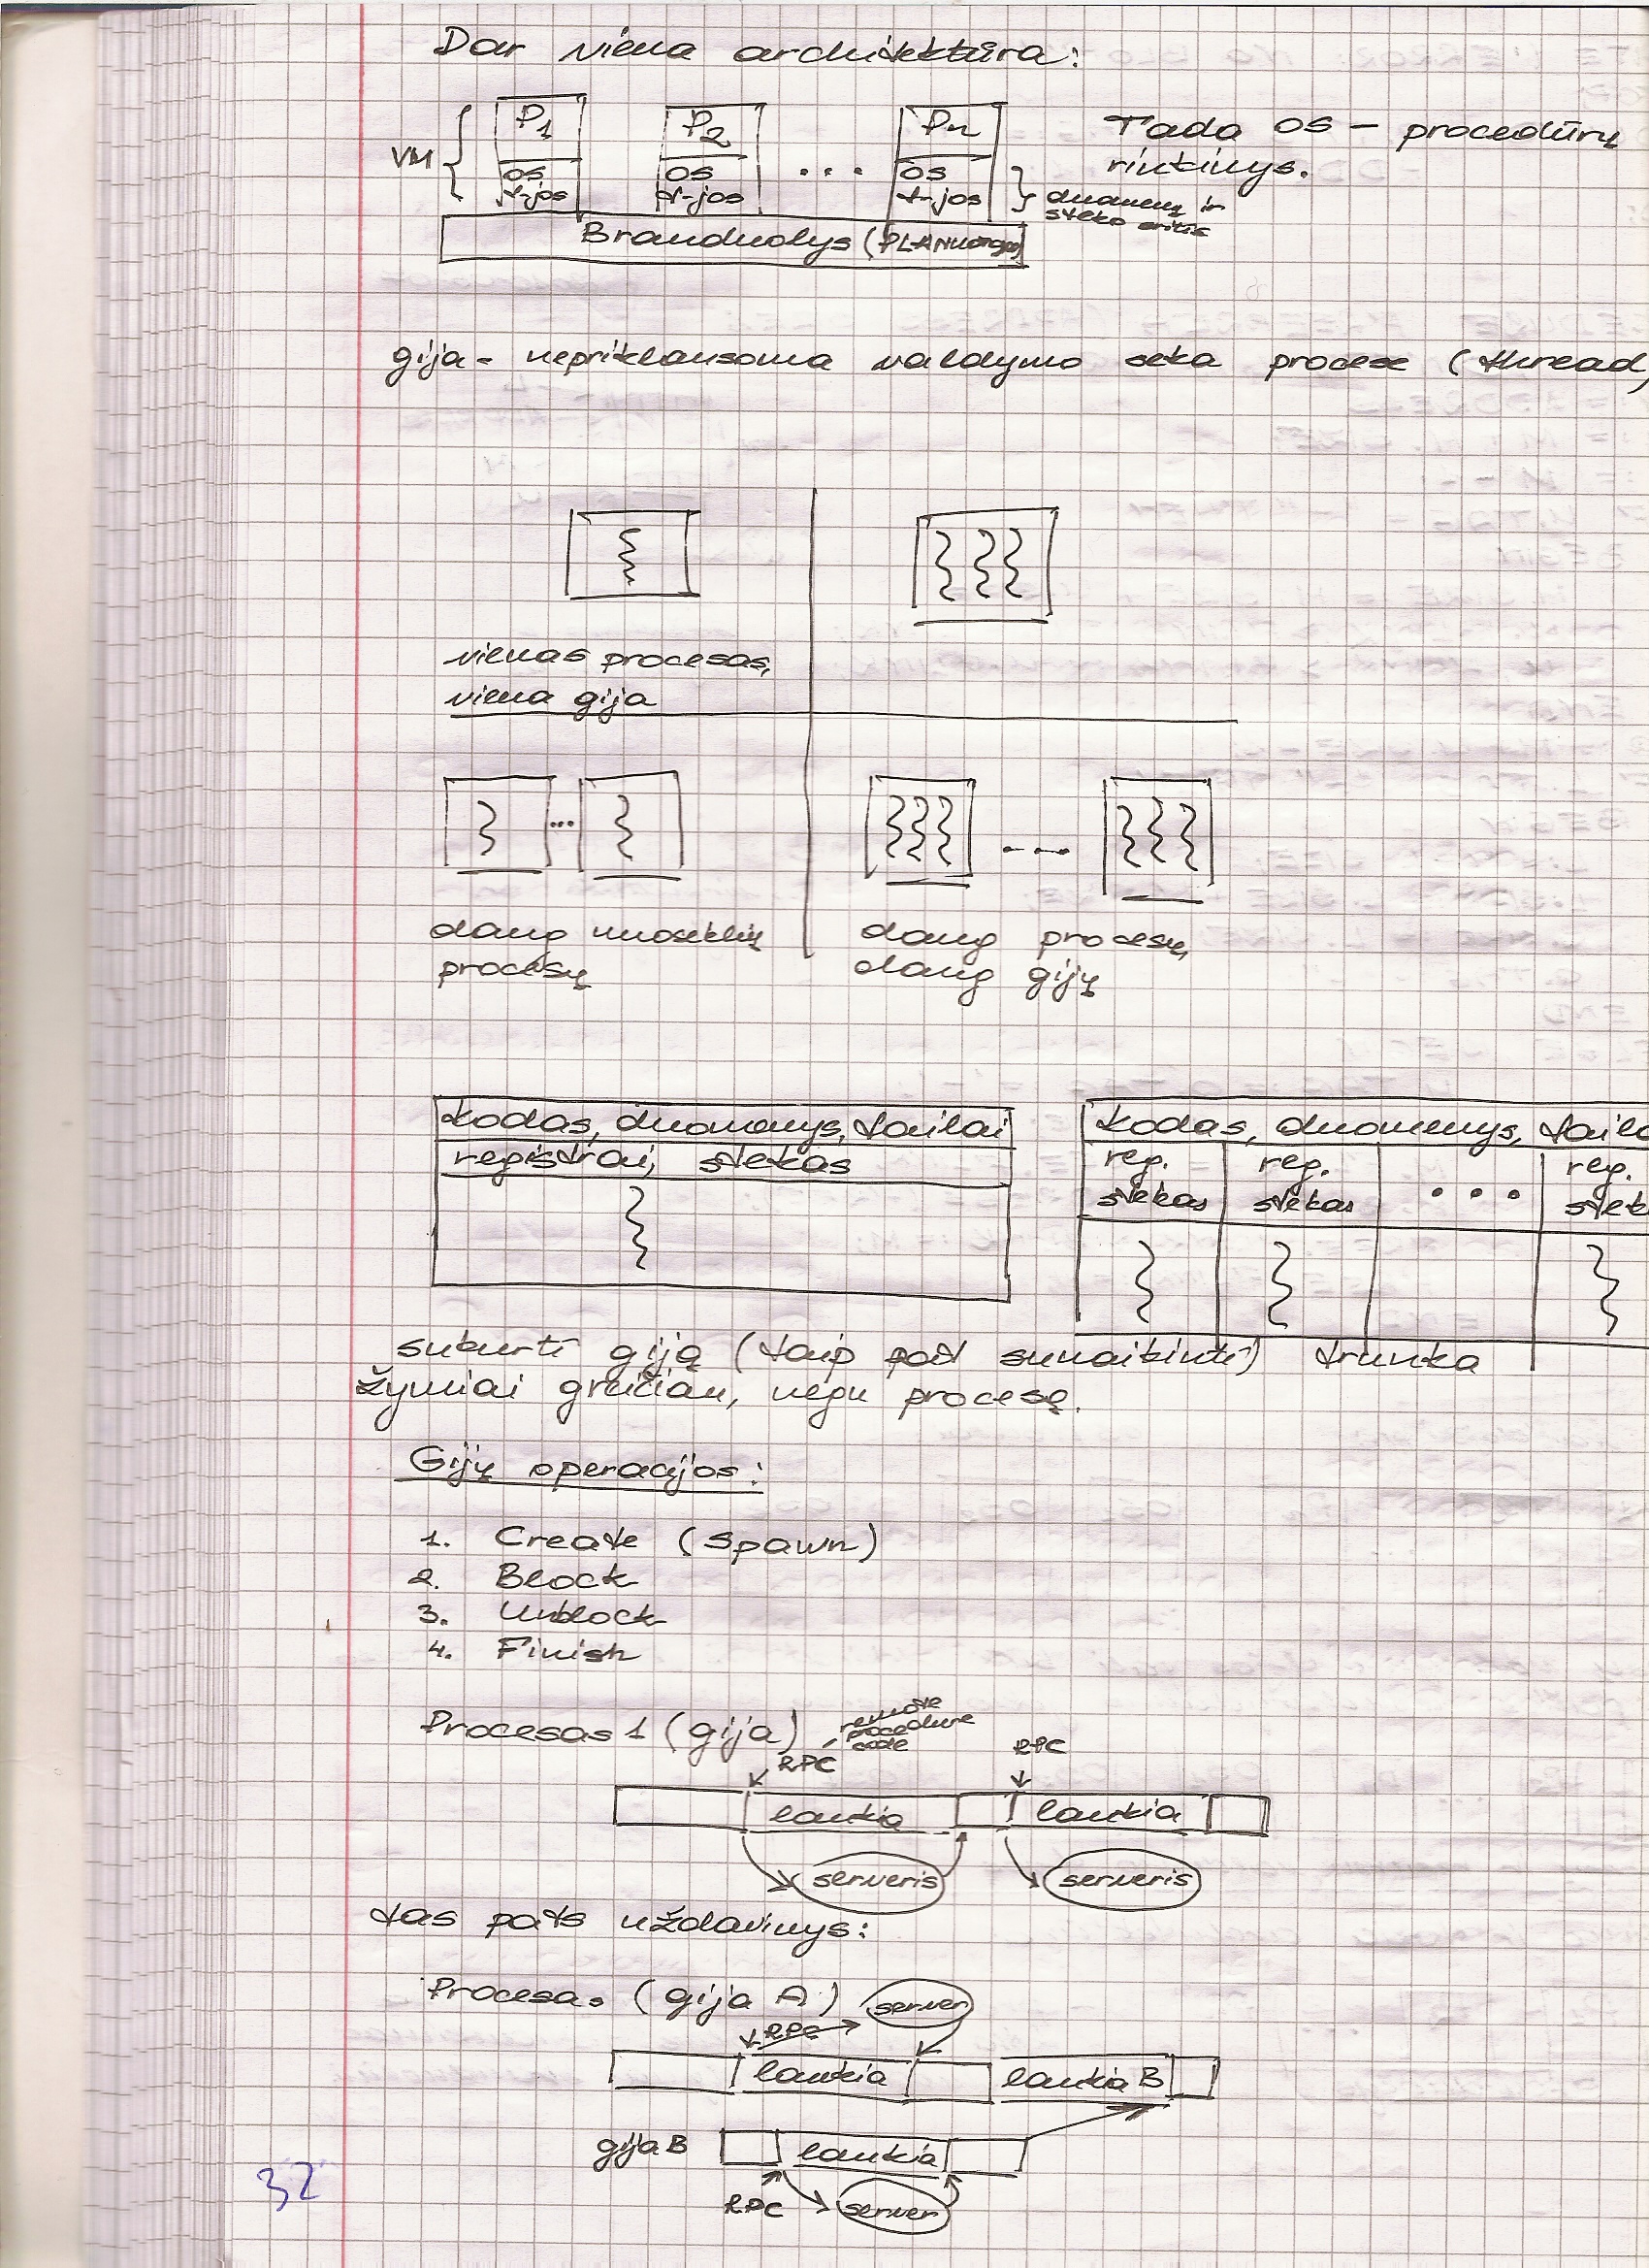 Dar viena architektūra:
P1 P2 ... Pn
VM
OS f-jos OS f-jos OS f-jos
Tada OS – procedūrų
rinkinys.
duomenų ir
steko sritis
Branduolys (
gija - nepriklausoma valdymo seka procese (thread,
vienas procesas,
viena gija
...
daug nuoseklių
procesų
daug procesų,
daug gijų
kodas, duomenys, failai
registrai, stekas
kodas, duomenys, failo
reg. reg. reg.
stekas stekas ... stek
sukurti giją (taip pat sunaikinti) trunka
žymiai greičiau, negu procesą.
Gijų operacijos:
1. Create (spawn)
2. Block
3. Unblock
4. Finish
Procesas 1 (gija)
remote
procedure
code
RPC
RPC
laukia laukia
serveris serveris
tas pats uždavinys:
Procesas (gija A)
server
RPC
laukia laukia B
gija B
laukia
RPC
server
32